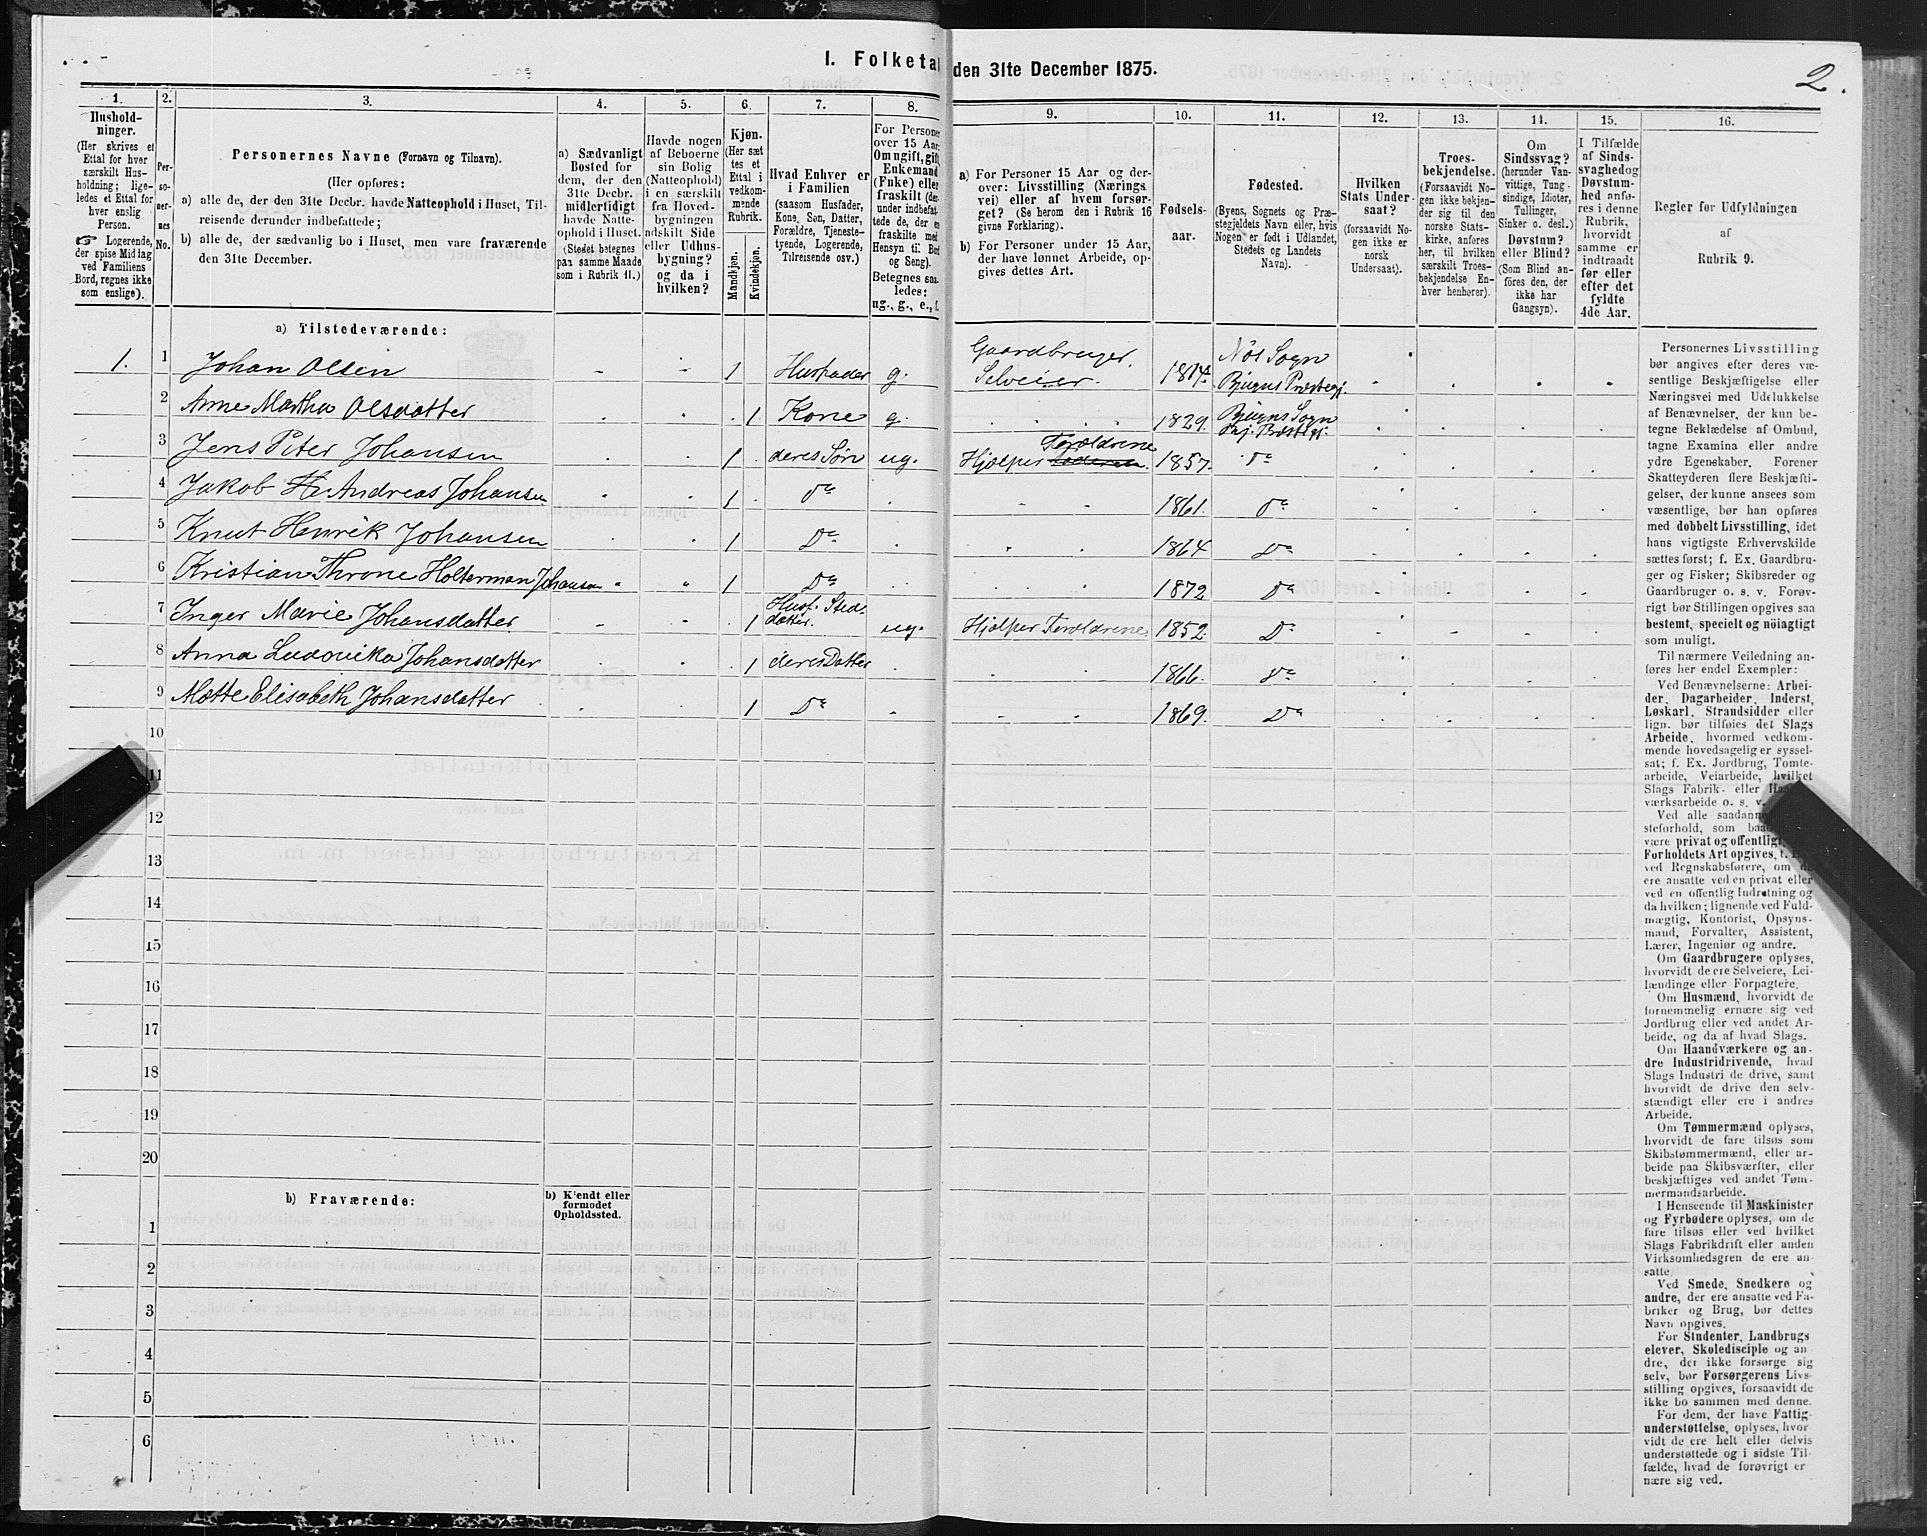 I. Folketal den 31te December 1875.
2.
1.
Hushold-
ninger.
(Her skrives et
Ettal for hver
særskilt Hus-
holdning; lige-
ledes et Ettal for
hver enslig
Person.
☞ Logerende,
der spise Middag
ved Familiens
Bord, regnes ikke
som enslige).
2.
Per-
so-
ner-
nes
No.
3.
Personernes Navne (Fornavn og Tilnavn).
(Her opføres:
a) alle de, der den 31te Decbr. havde Natteophold i Huset, Til-
reisende derunder indbefattede;
b) alle de, der sædvanlig bo i Huset, men vare fraværende
den 31te December.
4.
a) Sædvanligt
Bosted for
dem, der den
31te Decbr.
midlertidigt
havde Natte-
ophold i Huset.
(Stedet betegnes
paa samme Maade
som i Rubrik 11.)
5.
Havde nogen
af Beboerne
sin Bolig
(Natteophold)
i en særskilt
fra Hoved-
bygningen
adskilt Side
eller Udhus-
bygning?
og da i
hvilken?
6.
Kjøn.
(Her sæt
tes et
Ettal i
vedkom-
mende
Rubrik.
Mandkjøn.
Kvindekjøn.
7.
Hvad Enhver er
i Familien
(saasom Husfader,
Kone, Søn, Datter,
Forældre, Tjeneste-
tyende, Logerende,
Tilreisende osv.)
8.
For Personer
over 15 Aar:
Om ugift, gift,
Enkemand
(Enke) eller
fraskilt (der-
under indbefat-
tede de, der ere
fraskilte med
Hensyn til Bord
og Seng).
Betegnes saa-
ledes:
ug., g., e., f.
9.
a) For Personer 15 Aar og der-
over: Livsstilling (Nærings
vei) eller af hvem forsør-
get? (Se herom den i Rubrik 16
givne Forklaring).
b) For Personer under 15 Aar,
der have lønnet Arbeide, op-
gives dettes Art.
10.
Fødsels-
aar.
11.
Fødested.
(Byens, Sognets og Præ-
stegjeldets Navn eller, hvis
Nogen er født i Udlandet,
Stedets og Landets
Navn).
12.
Hvilken
Stats Under-
saat?
(forsaavidt No-
gen ikke er
norsk
Undersaat).
13.
Troes-
bekjendelse.
(Forsaavidt No-
gen ikke bekjen-
der sig til den
norske Stats-
kirke, anføres
her, til hvilken
særskilt Troes-
bekjendelse En-
hver henhører).
14.
Om
Sindssvag?
(herunder Van-
vittige, Tung-
sindige, Idioter,
Tullinger,
Sinker o. desl.)
Døvstum?
eller Blind?
(Som Blind an-
føres den, der
ikke har
Gangsyn).
15.
I Tilfælde
af Sinds-
svaghed og
Døvstum-
hed anfø-
res i denne
Rubrik,
hvorvidt
samme er
indtraadt
før eller
efter det
fyldte
4de Aar.
16.
Regler før Udfyldningen
af
Rubrik 9.
a) Tilstedeværende:
1. 1 Johan Olsen 1 Husfader g. Gaardbruger Selveier. 1814. Nøs Sogn Bjugns Præstegj.
2 Anne Martha Olsdatter 1 Kone g. 1829. Bjugns Sogn
3 Jens Peter Johansen 1 deres Søn ug. Hjælper Forældrene 1857. Do
4 Jakob H Andreas Johansen 1 do 1861. do
5 Knut Henrik Johansen 1 Do 1864 Do
6 Kristian Throne Holterman Johansen 1 Do 1872 Do
7 Inger Marie Johansdatter 1 Husf. Sted datter. ug. Hjælper Forældrene 1852. Do
8 Anna Ludovika Johansdatter 1 deres Datter 1866. Do
9 Mette Elisabeth Johansdatter 1 Do 1869. Do
10
11
12
13
14
15
16
17
18
19
20
b) Fraværende:
b) Kjendt eller
formodet
Opholdssted.
1
2
3
4
5
6
Personernes Livsstilling
bør angives efter deres væ-
sentlige Beskjæftigelse eller
Næringsvei med Udelukkelse
af Benævnelser, der kun be-
tegne Beklædelse af Ombud,
tagne Examina eller andre
ydre Egenskaber. Forener
Skatteyderen flere Beskjæfti-
gelser, der kunne ansees som
væsentlige, bør han opføres
med dobbelt Livsstilling, idet
hans vigtigste Erhvervskilde
sættes først; f. Ex. Gaardbru-
ger og Fisker; Skibsreder og
Gaardbruger o. s. v. Forøv-
rigt bør Stillingen opgives saa
bestemt, specielt og nöiagtigt
som muligt.
Til nærmere Veiledning an-
føres her endel Exempler:
Ved Benævnelserne: Arbei-
der, Dagarbeider, Inderst,
Løskarl, Strandsidder eller
lign. bør tilføies det Slags
Arbeide, hvormed vedkom-
mende hovedsagelig er syssel-
sat; f. Ex. Jordbrug, Tomte-
arbeide, Veiarbeide, hvilket
Slags Fabrik- eller
værksarbeide o. s. v.
Ved alle saadanne
steforhold, som
være privat og offentligt,
Forholdets Art opgives,
ved Regnskabsførere, om de
ere ansatte ved en privat eller
ved en offentlig Indretning og
da hvilken; lignende ved Fuld-
mægtig, Kontorist, Opsyns-
mand, Forvalter, Assistent,
Lærer, Ingeniør og andre.
Om Gaardbrugere oplyses,
hvorvidt de ere Selveiere, Lei-
lændinge eller Forpagtere.
Om Husmænd, hvorvidt de
fornemmelig ernære sig ved
Jordbrug eller ved andet Ar-
beide, og da af hvad Slags.
Om Haandværkere og an-
dre Industridrivende, hvad
Slags Industri de drive, samt
hvorvidt de drive den selv-
stændigt eller ere i andres
Arbeide.
Om Tømmermænd oplyses,
hvorvidt de fare tilsøs som
Skibstømmermænd, eller ar-
beide paa Skibsværfter, eller
beskjæftiges ved andet Tøm-
mermandsarbeide.
I Henseende til Maskinister
og Fyrbødere oplyses, om de
fare tilsøs eller ved hvilket
Slags Fabrikdrift eller anden
Virksomhedsgren de ere an-
satte.
Ved Smede, Snedkere og
andre, der ere ansatte ved Fa-
briker og Brug, bør dettes
Navn opgives.
For Studenter, Landbrugs
elever, Skoledisciple og an-
dre, der ikke forsørge sig
selv, bør Forsørgerens Livs-
stilling opgives, forsaavidt de
ikke bo sammen med denne.
For dem, der have Fattig-
understøttelse, oplyses, hvor-
vidt de ere helt eller delvis
understøttede og i sidste Til-
fælde, hvad de forøvrigt er-
nære sig ved.